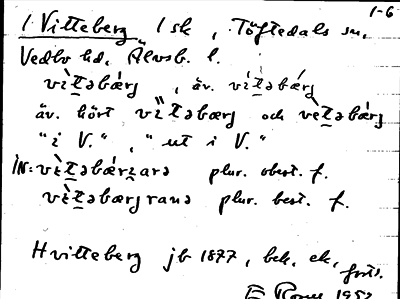 1-6
1 Vitteberg 1 sk, Töftedals sn,
Vedbo hd, Älvsb. l.
vìt̲əbærj, äv. vít̲əbǽrj
äv. hört vìtəbærj och vètəbærj
"i V.", "ut i V."
IN: vìt̲əbǽrjarə plur. obest. f.
vìt̲əbærjranə plur. best. f.
Hvitteberg jb 1877, beb. ek,
forts.
1952